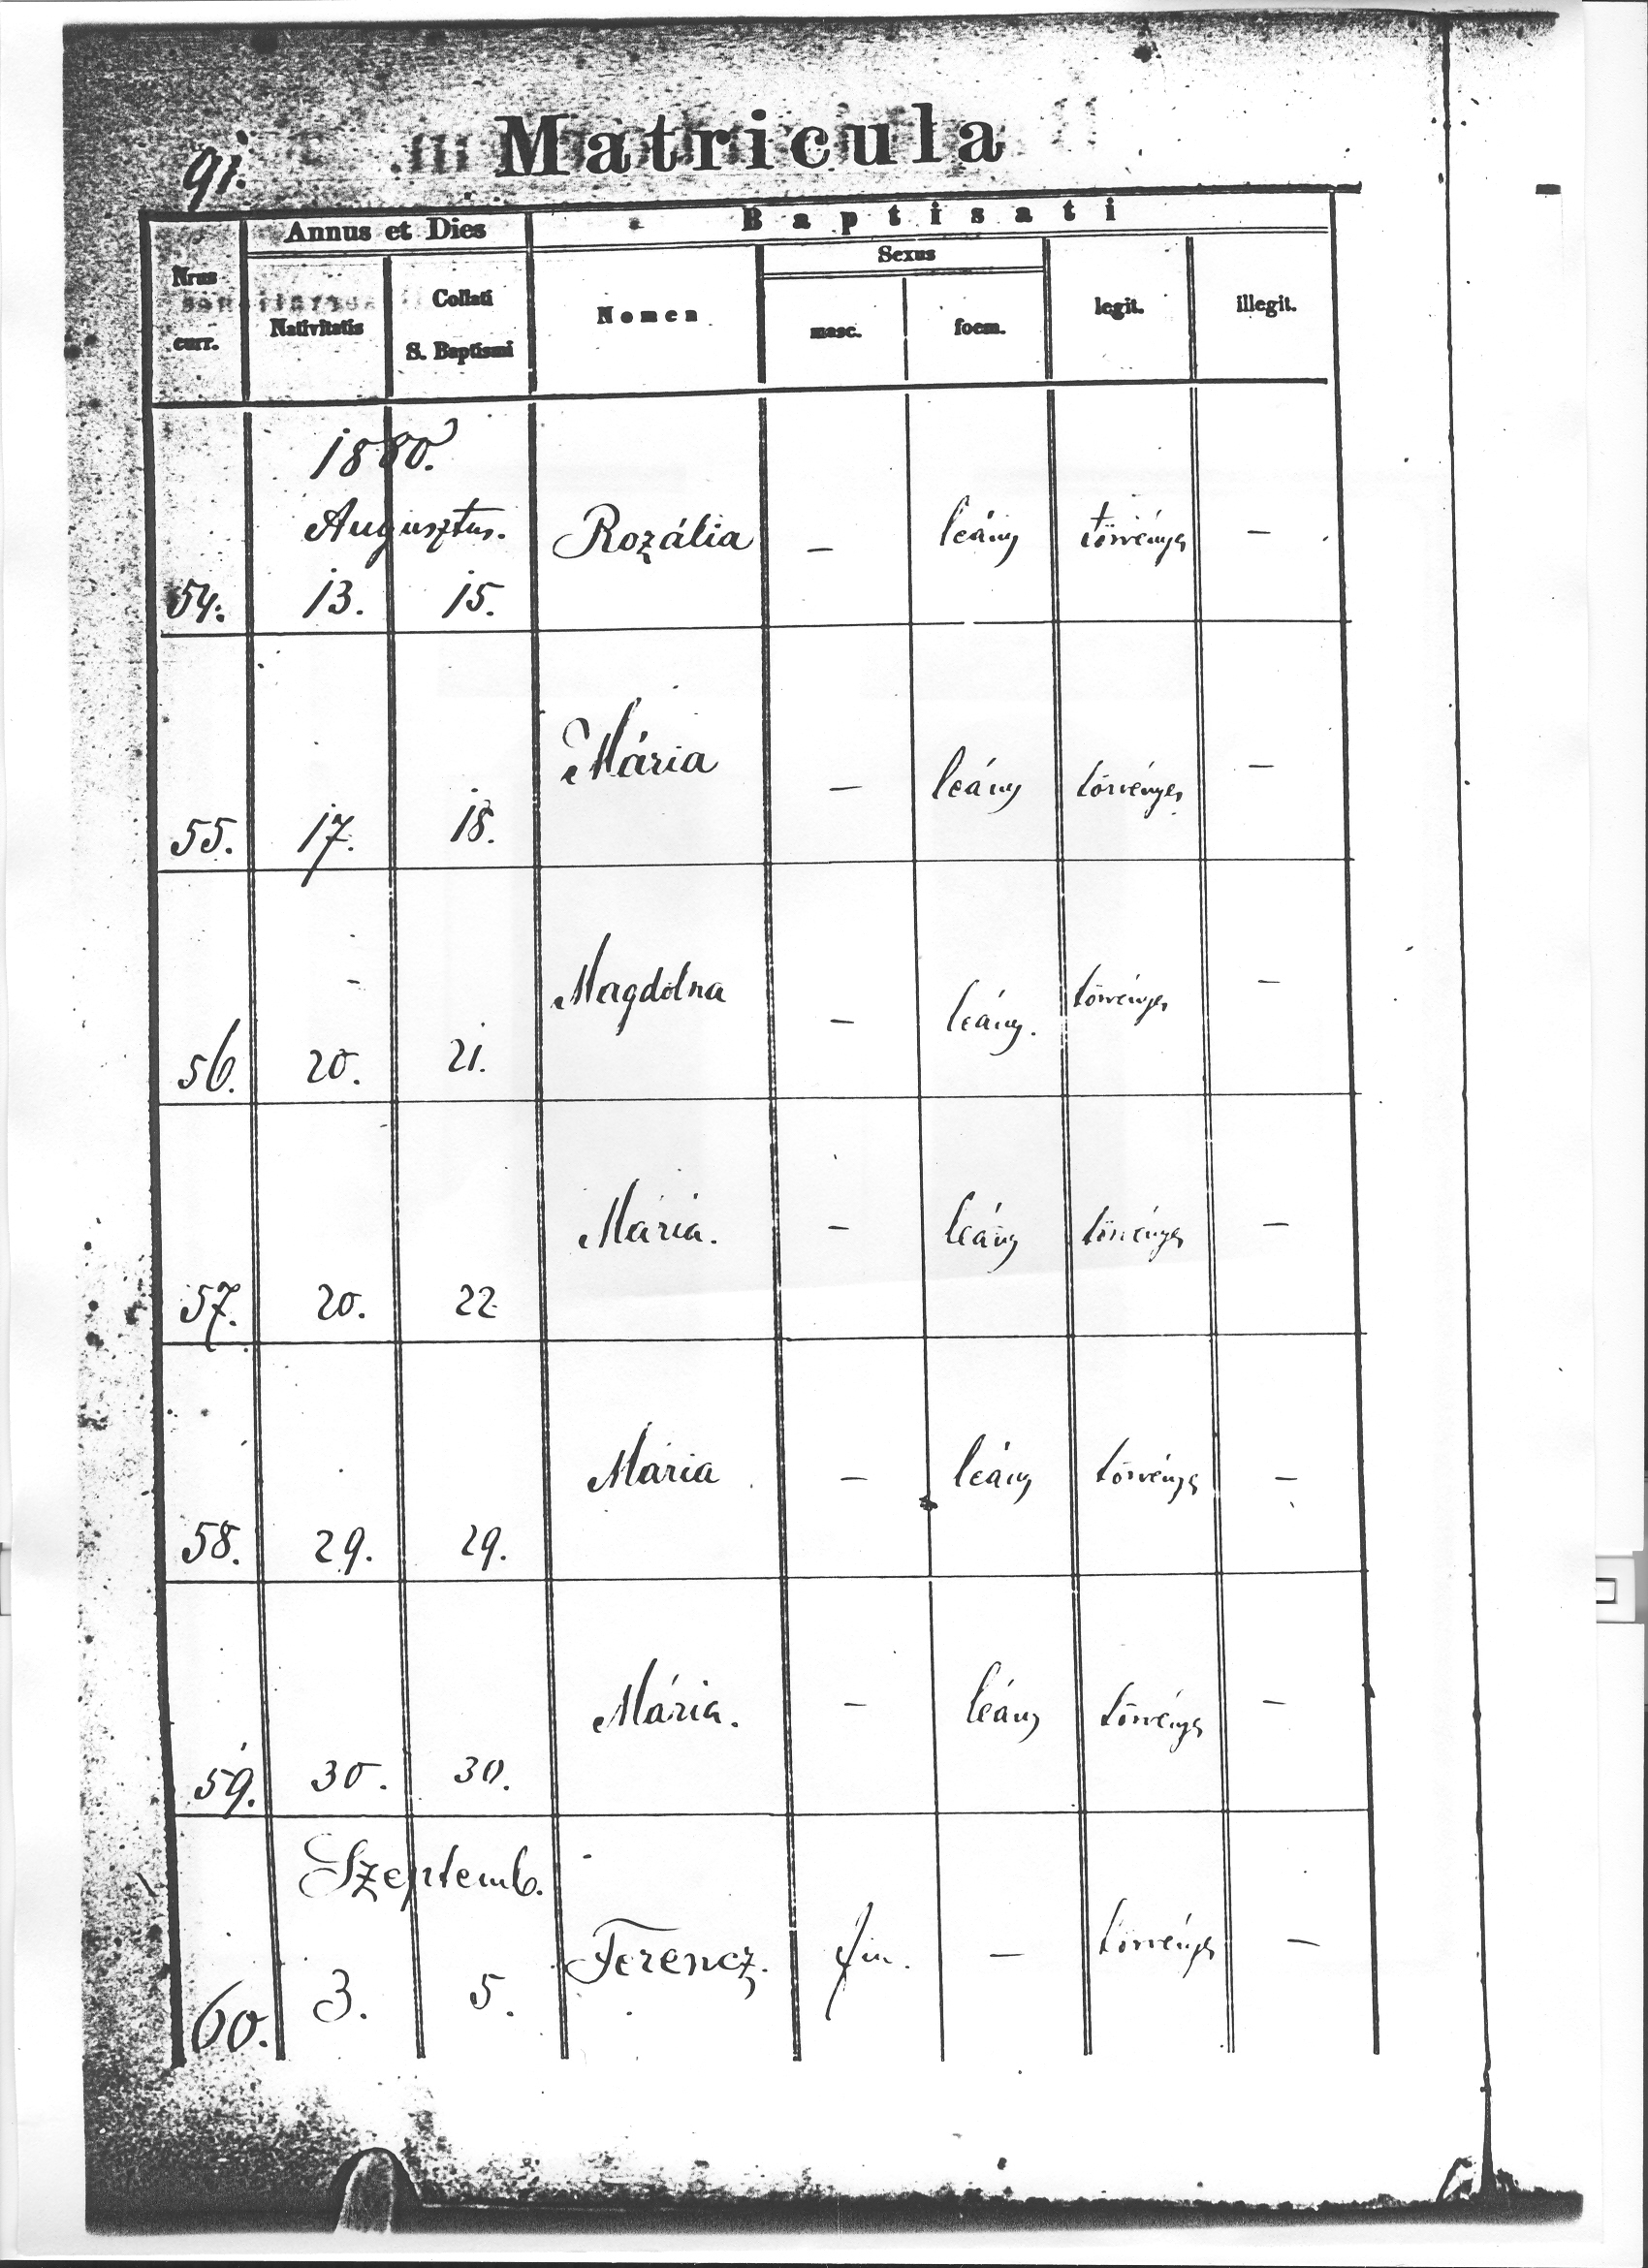 91.
Matricula
Annus et Dies
Baptisati
Nrus
curr.
Nativitatis
Collati
S. Baptismi
Nomen
Sexus
masc.
foem.
legit.
illegit.
1880.
Augusztus.
54. 13. 15. Rozália – leány törvényes –
55. 17. 18. Mária – leány törvényes –
56. 20. 21. Magdolna – leány. törvényes –
57. 20. 22 Mária. – leány törvényes –
58. 29. 29. Mária – leány törvényes –
59. 30. 30. Mária. – leány törvényes –
Szeptemb.
60. 3. 5. Ferencz. fiu. – törvényes –